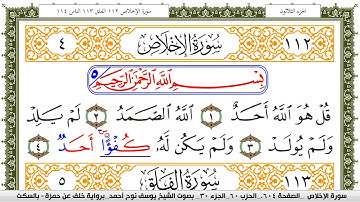 الجزء الثلاثون سورة الإخلاص ١١٢ الفلق ١١٣ الناس ١١٤
١١٢ سُورَةُ الإِخْلَاصِ ٤
بِسْمِ اللَّهِ الرَّحْمَٰنِ الرَّحِيمِ ٥
قُلْ هُوَ اللَّهُ أَحَدٌ ١ اللَّهُ الصَّمَدُ ٢ لَمْ يَلِدْ
وَلَمْ يُولَدْ ٣ وَلَمْ يَكُن لَّهُ كُفُؤًا أَحَدٌ ٤
١١٣ سُورَةُ الْفَلَقِ ٥
سورة الإخلاص - الصفحة ٦٠٤ - الحزب ٦٠ - الجزء ٣٠ - بصوت الشيخ يوسف نوح احمد - برواية خلف عن حمزة - بالسكت